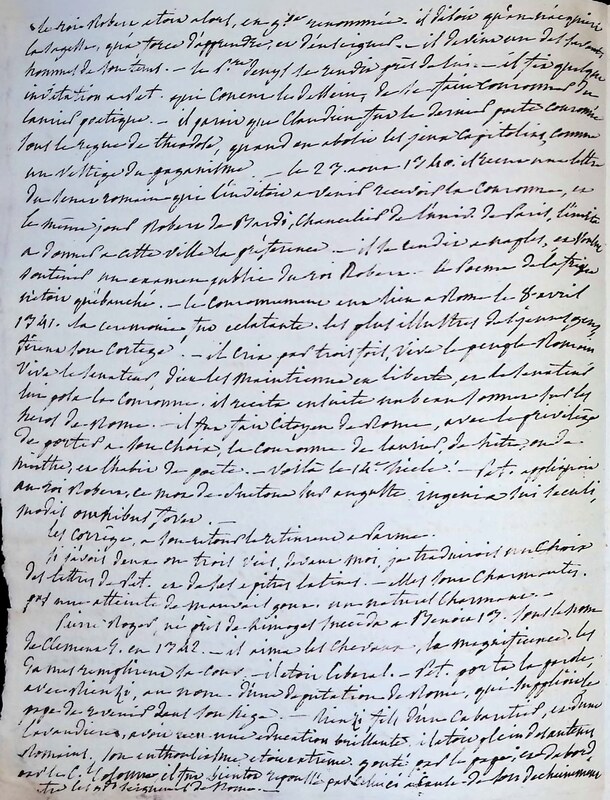 le roi Robert etoit alors, en gde renommée. il disoit qu'on n'acqueroit
la sagesse, qu'a force d'apprendre, et d'enseigner. — il devint un des savants
hommes de son tems. — le Pere denys se rendit près de lui. — il fit quelque
invitation a Pet. qui concut le dessein, de se faire couronner du
laurier poetique. — il paroit que Claudien fut le dernier poete couronné
sous le regne de theodose, quand on abolit les jeux Capitolins, comme
un vestige du paganisme — le 23 aout 1340. il recut une lettre
du senat romain qui l'invitoit a venir recevoir la couronne, et
le même jour Robert de Bardi, Chancelier de l'univ. de Paris, l'invite
a donner a cette ville la préférence. — il se rendit a naples, et voulut
soutenir un examen public du roi Robert. — le Poeme de l'afrique
n'etoit qu'ébauché. — le couronnement eut lieu a Rome le 8 avril
1341. la ceremonie fut eclatante. les plus illustres des jeunes gens,
firent son cortege. — il cria par trois fois, vive le peuple Romain
vive le senateur, dieu les maintienne en liberté, et le senateur
lui posa la couronne. il recita ensuite un beau sonnet sur les
heros de Rome. — il fut fait citoyen de Rome, avec le privilège
de porter a son choix, la couronne de laurier, de hêtre, ou de
mirthe, et l'habit de poete. — voilà le 14e siecle! — Pet. appliquoit
au roi Robert, ce mot de Suetone sur auguste, ingenia sui seculi
modis omnibus fovit.
les Correge, a son retour le retinrent a Parme.
Si j'avois deux ou trois vies, devant moi, je traduirois un Choix
des lettres de Pet. et de ses epitres latines. — elles sont Charmantes.
pas une atteinte de mauvais gout. un naturel Charmant. —
Pierre Roger, né près de limoges succeda a Benoit 13. sous le nom
de Clement 6. en 1342. — il aima les Chevaux, la magnificence. les
dames remplirent sa cour. — il etoit liberal. — Pet. porte la parole,
avec Rienzi, au nom d'une deputation de Rome, qui supplioit le
pape de revenir dans son siege. — Rienzi fils d'un Cabaretier, et d'une
lavandiere, avoit recu une education brillante. il etoit plein des auteurs
Romains. son enthousiasme etoit extrême. gouté par le pape, et d'abord
par le C. Colonne il fut bientot repoussé par celui ci a cause de son dechainement
contre les seigneurs de Rome. —